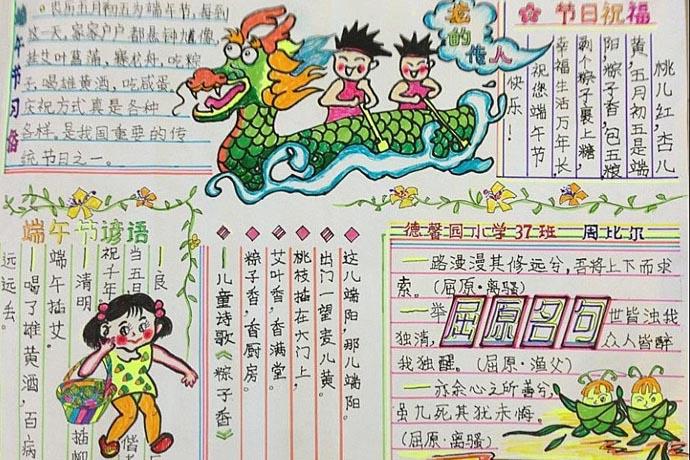 端午节习俗
五月初五为端午节,每到
这一天,家家户户都悬钟馗像,
挂艾叶菖蒲,赛龙舟,吃粽
子,喝雄黄酒,吃咸蛋,
庆祝方式真是各种
各样,是我国重要的传
统节日之一。
龙的传人
节日祝福
桃儿红,杏儿
黄,五月初五是端
阳,粽子香,包五粮,
剥个粽子裹上糖,
幸福生活万年长,
祝您端午节
快乐!
端午节谚语
—良
当五日
祝千年
—清明插柳
端午插艾。
—喝了雄黄酒,百病
远远丢。
这儿端阳,那儿端阳。
出门一望麦儿黄。
桃枝插在大门上,
艾叶香,香满堂。
粽子香,香厨房。
—儿童诗歌《粽子香》
德馨园小学37班 周比尔
屈原名句
—路漫漫其修远兮,吾将上下而求
索。(屈原·离骚)
—举世皆浊我
独清,众人皆醉
我独醒。(屈原·渔父)
—亦余心之所善兮,
虽九死其犹未悔。
(屈原·离骚)